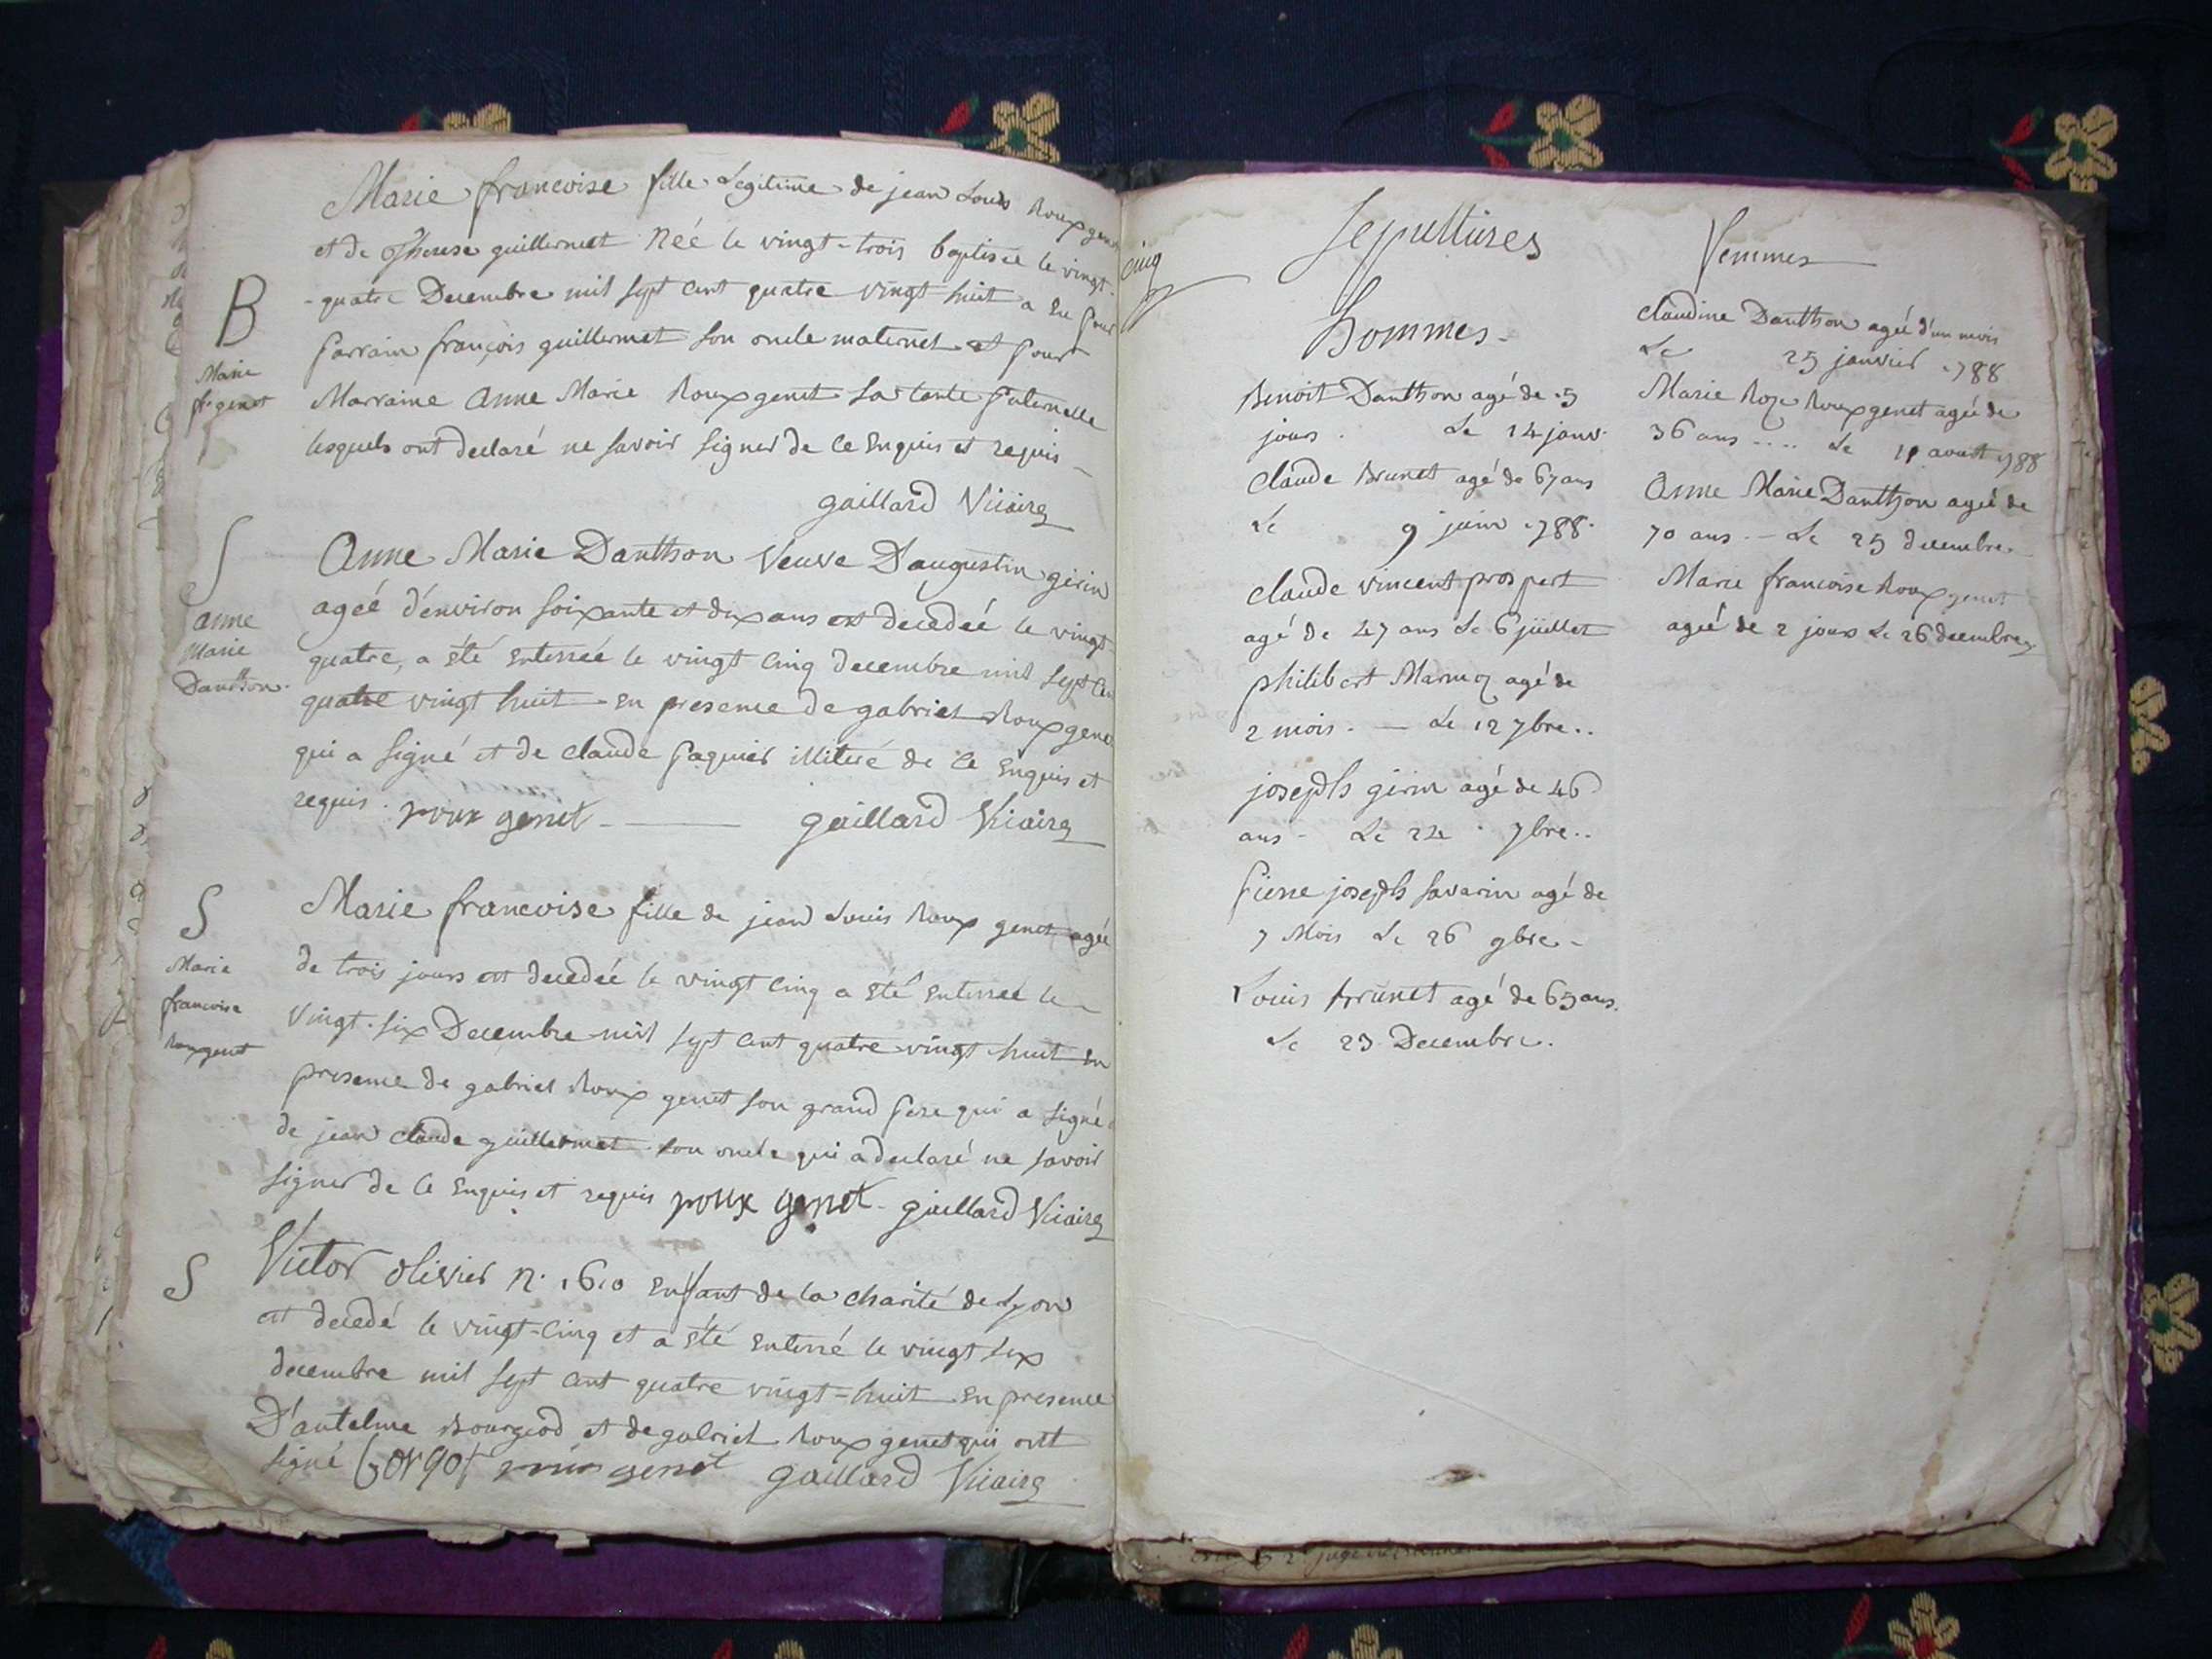 Marie francoise fille Legitime de jean Louis Roux genet
et de Therese guillermet Néé le vingt-trois baptisée le vingt-
-quatre Decembre mil sept cent quatre vingt huit a Eu pour
parrain françois guillermet son oncle maternel et pour
Marraine Anne Marie Roux genet sa tante paternelle
lesquels ont declaré ne savoir signer de ce Enquis et requis
gaillard Vicaire
B
Marie
fr. genet
Anne Marie Dantthon Veuve D'augustin girin
ageé d'environ soixante et dix ans est decedeé le vingt
quatre, a été enterrée le vingt cinq decembre mil sept cen
quatre vingt huit - en presence de gabriel Roux genet
qui a signé et de claude paquier illiteré de ce Enquis et
requis. roux genet - gaillard Vicaire
S
anne
Marie
Dantthon.
Marie francoise fille de jean Louis Roux genet ageé
de trois jours est decedeé le vingt cinq a été enterreé le
vingt-six Decembre mil sept cent quatre vingt huit en
presence de gabriel Roux genet son grand pere qui a signé
de jean claude guillermet son oncle qui a declaré ne savoir
signer de ce Enquis et requis roux genet - gaillard Vicaire
S
Marie
francoise
Rouxgenet
Victor olivier N. 1610 Enfant de la charité de Lyon
est decedé le vingt-cinq et a été Enterré le vingt six
decembre mil sept cent quatre vingt-huit en presence
D'antelme Bourgeod et de gabriel Roux genet qui ont
signé genet gaillard Vicaire
S
cinq
Sepultures
Hommes -
Benoit Dantthon agé de 5
jours. Le 14 janv.
Claude Brunet agé de 67 ans
Le 9 juin 788.
claude vincent prospert
agé de 47 ans Le 6 juillet
philibert agé de
2 mois. — Le 12 7bre..
joseph girin agé de 46
ans - Le 22 7bre..
Pierre joseph savarin agé de
7 Mois Le 26 9bre -
Louis brunet agé de 65 ans.
Le 23 Decembre.
Femmes
Claudine Dantthon ageé d'un mois
Le 25 janvier 788
Marie Roze Roux genet ageé de
36 ans .... Le aoust 788
Anne Marie Dantthon ageé de
70 ans. - Le 25 decembre
Marie francoise Roux genet
ageé de 2 jours Le 26 decembre